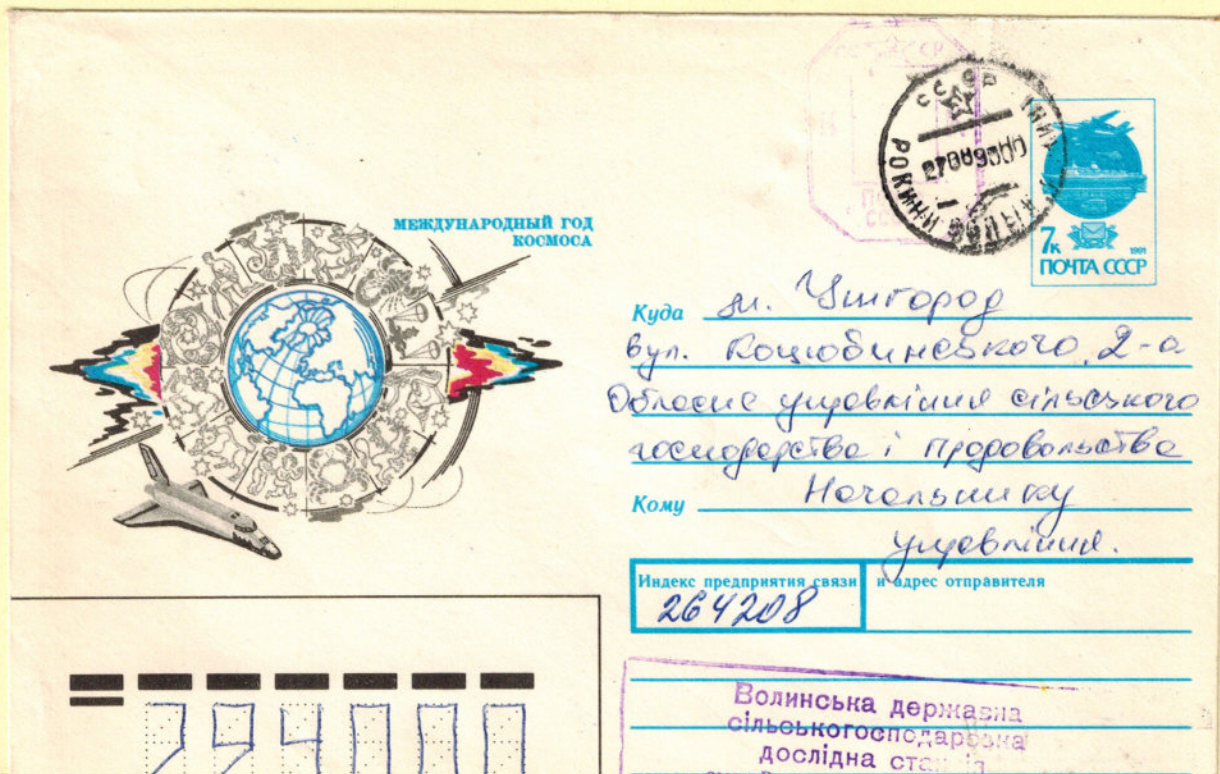 МЕЖДУНАРОДНЫЙ ГОД
КОСМОСА
СССР
РОКИНІ
7к
1991
ПОЧТА СССР
Куда м. Ужгород
вул. Коцюбинського, 2-а
Обласне управління сільського
господарства і продовольства
Кому Начальнику
управління.
Индекс предприятия связи и адрес отправителя
264208
294000
Волинська державна
сільськогосподарська
дослідна станція